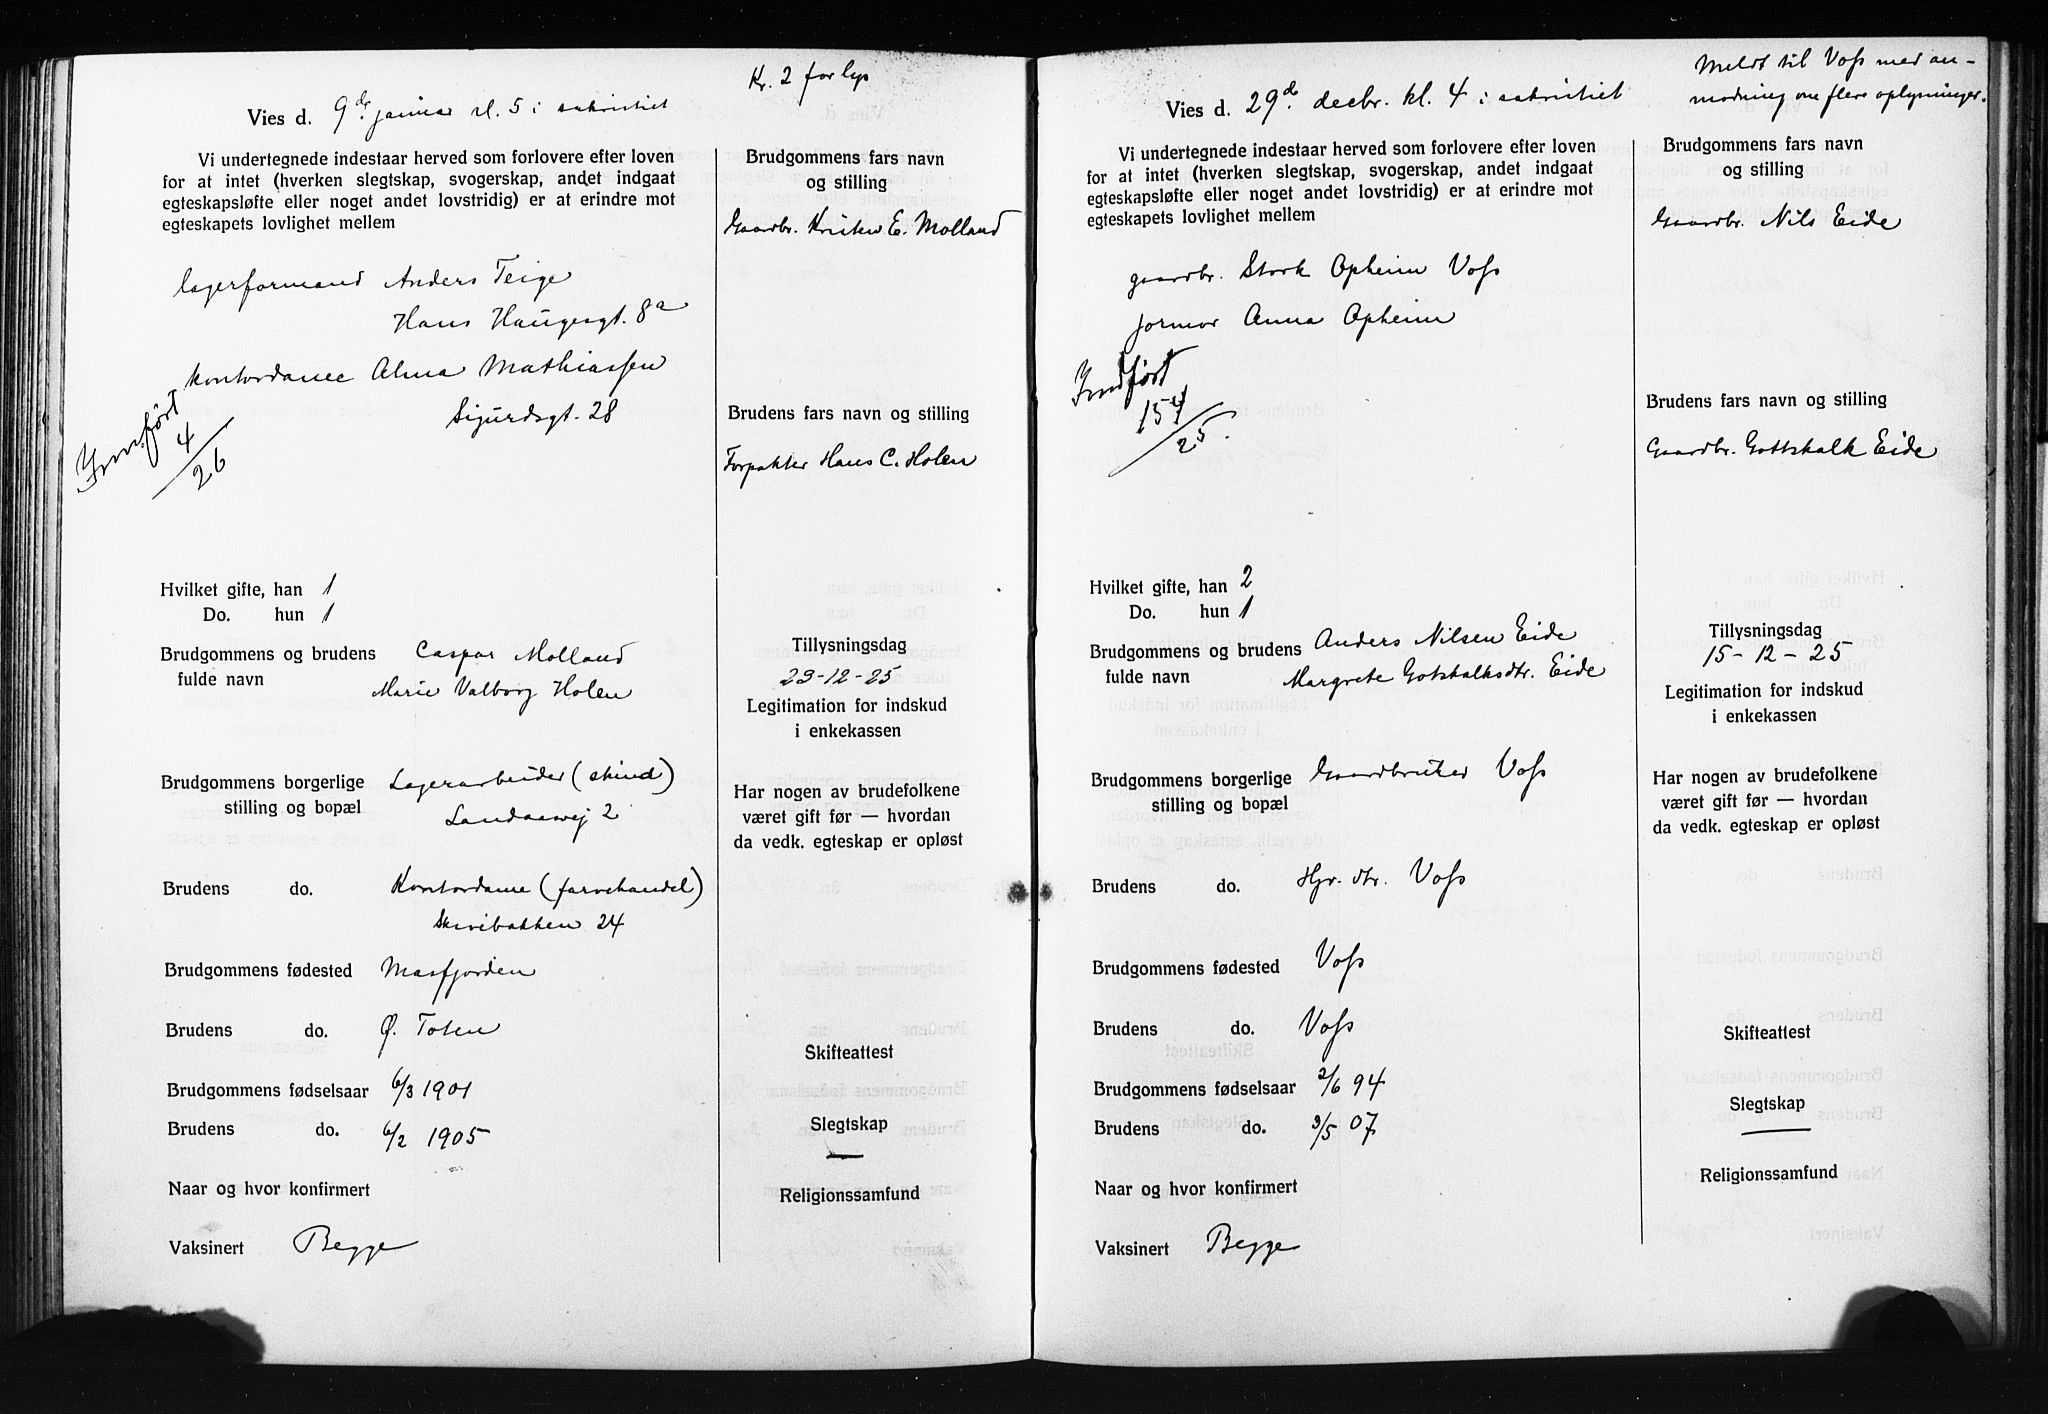 Kr. 2 for lys
Vies d. 9de januar kl. 5 i sakristiet
Vi undertegnede indestaar herved som forlovere efter loven
for at intet (hverken slegtskap, svogerskap, andet indgaat
egteskapsløfte eller noget andet lovstridig) er at erindre mot
egteskapets lovlighet mellem
lagerformand Anders Teige
Hans Haugesgt. 8a
kontordame Alma Mathiassen
Sigurdsgt. 28
Indført
4
26
Hvilket gifte, han 1
Do. hun 1
Brudgommens og brudens Caspar Molland
fulde navn Marie Valborg Holen
Brudgommens borgerlige Lagerarbeider (skind)
stilling og bopæl Landaasvej 2
Brudens do. Kontordame (farvehandel)
Skivebakken 24
Brudgommens fødested Masfjorden
Brudens do. Ø. Toten
Brudgommens fødselsaar 6/3 1901
Brudens do. 6/2 1905
Naar og hvor konfirmert
Vaksinert Begge
Brudgommens fars navn
og stilling
Gaardbr. Kristen E. Molland
Brudens fars navn og stilling
Forpakter Hans C. Holen
Tillysningsdag
23-12-25
Legitimation for indskud
i enkekassen
Har nogen av brudefolkene
været gift før — hvordan
da vedk. egteskap er opløst
Skifteattest
Slegtskap
—
Religionssamfund
Meldt til Voss med an-
modning om flere oplysninger.
Vies d. 29d. decbr. kl. 4 i sakristiet
Vi undertegnede indestaar herved som forlovere efter loven
for at intet (hverken slegtskap, svogerskap, andet indgaat
egteskapsløfte eller noget andet lovstridig) er at erindre mot
egteskapets lovlighet mellem
gaardbr. Stork Opheim Voss
jormor Anna Opheim
Indført
154
25.
Hvilket gifte, han 2
Do. hun 1
Brudgommens og brudens Anders Nilsen Eide
fulde navn Margrete Gotskalksdtr. Eide
Brudgommens borgerlige Gaardbruker Voss
stilling og bopæl
Brudens do. Hjv. dtr. Voss
Brudgommens fødested Voss
Brudens do. Voss
Brudgommens fødselsaar 2/6 94
Brudens do. 3/5 07
Naar og hvor konfirmert
Vaksinert Begge
Brudgommens fars navn
og stilling
Gaardbr. Nils Eide
Brudens fars navn og stilling
Gaardbr. Gottskalk Eide
Tillysningsdag
15-12-25
Legitimation for indskud
i enkekassen
Har nogen av brudefolkene
været gift før — hvordan
da vedk. egteskap er opløst
Skifteattest
Slegtskap
—
Religionssamfund